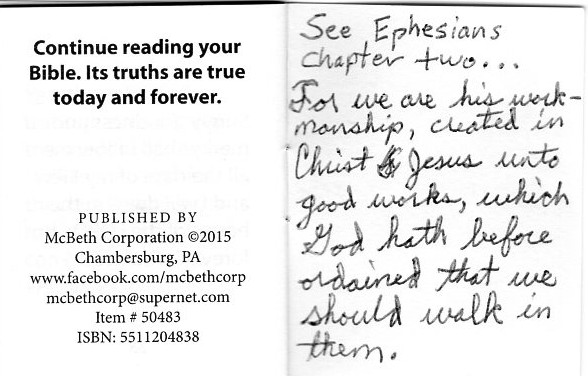 Continue reading your
Bible. Its truths are true
today and forever.
PUBLISHED BY
McBeth Corporation ©2015
Chambersburg, PA
www.facebook.com/mcbethcorp
mcbethcorp@supernet.com
Item # 50483
ISBN: 5511204838
See Ephesians
chapter two...
For we are his work-
manship, created in
Christ Jesus unto
good works, which
God hath before
ordained that we
should walk in
them.